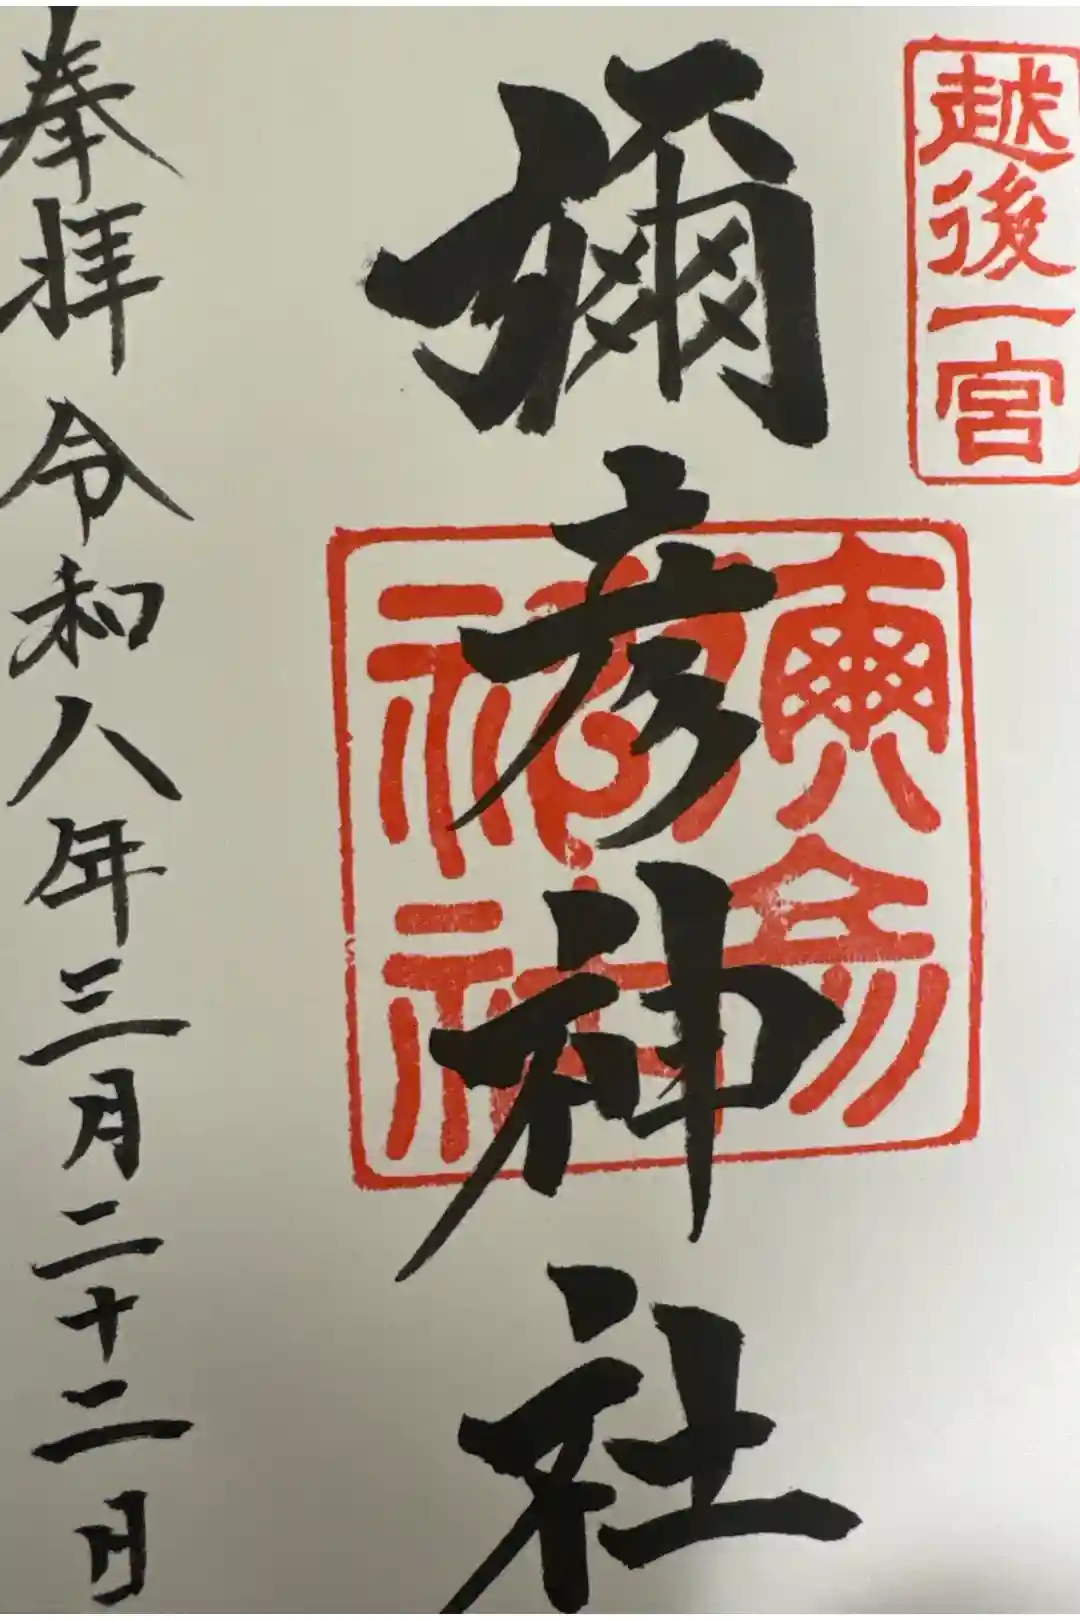 越後一宮
彌彦神社
彌彦
神社
奉拝 令和八年三月二十二日